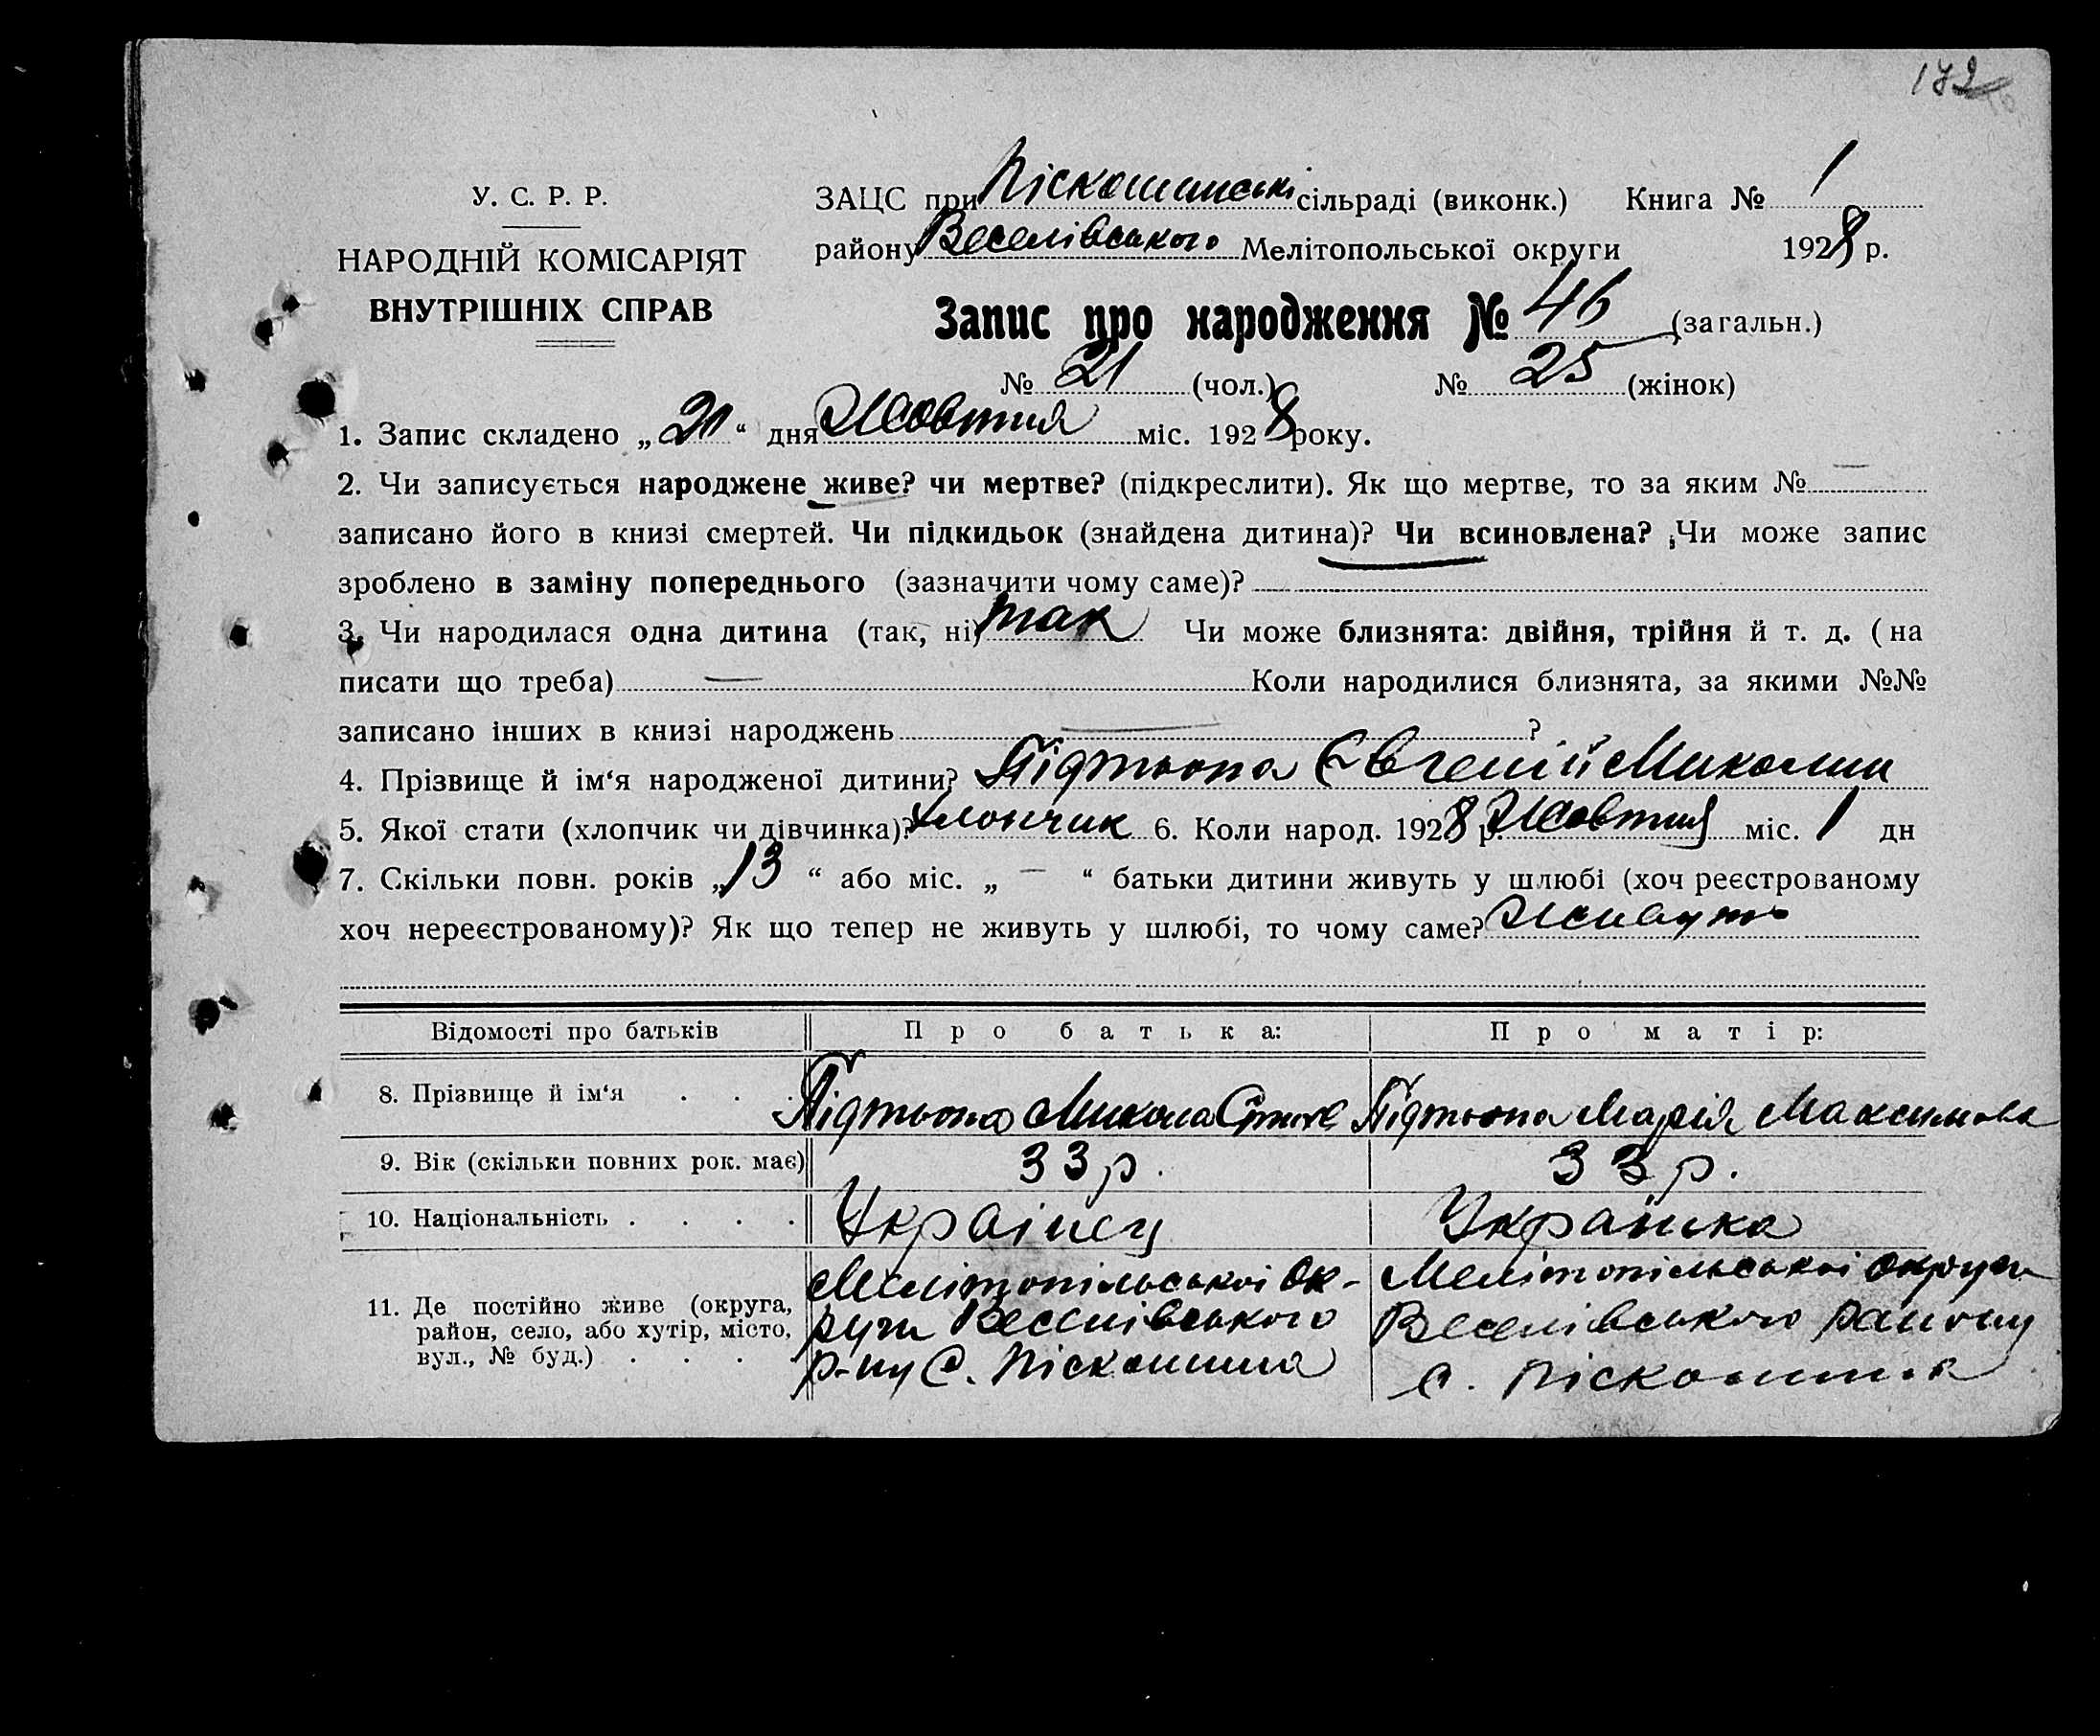 172
У. С. Р. Р.
НАРОДНІЙ КОМІСАРІЯТ
ВНУТРІШНІХ СПРАВ
ЗАЦС при Піскошинські сільраді (виконк.) Книга № 1
району Веселівського Мелітопольської округи 1928 р.
Запис про народження № 46 (загальн.)
№ 21 (чол.) № 25 (жінок)
1. Запис складено „ 20 “ дня Жовтня міс. 1928 року.
2. Чи записується народжене живе? чи мертве? (підкреслити). Як що мертве, то за яким № —
записано його в книзі смертей. Чи підкидьок (знайдена дитина)? Чи всиновлена? Чи може запис
зроблено в заміну попереднього (зазначити чому саме)?
3. Чи народилася одна дитина (так, ні) так Чи може близнята: двійня, трійня й т. д. (на
писати що треба) — Коли народилися близнята, за якими №№
записано інших в книзі народжень — ?
4. Прізвище й ім‘я народженої дитини? Підтьопа Євгеній Миколин
5. Якої стати (хлопчик чи дівчинка)? Хлопчик 6. Коли народ. 1928 р. Жовтня міс. 1 дн
7. Скільки повн. років „ 13 “ або міс. „ — “ батьки дитини живуть у шлюбі (хоч реєстрованому
хоч нереєстрованому)? Як що тепер не живуть у шлюбі, то чому саме? Живуть
Відомості про батьків Про батька: Про матір:
8. Прізвище й ім‘я . . . Підтьопа Микола Підтьопа Марія Максимова
9. Вік (скільки повних рок. має) 33 р. 33 р.
10. Національність . . . . Українец Українка
11. Де постійно живе (округа, район, село, або хутір, місто, вул., № буд.) . . . .
Мелітопільської Ок-
руги Веселівського
р-ну С. Піскошина
Мелітопільської округи
Веселівського району
с. Піскошина